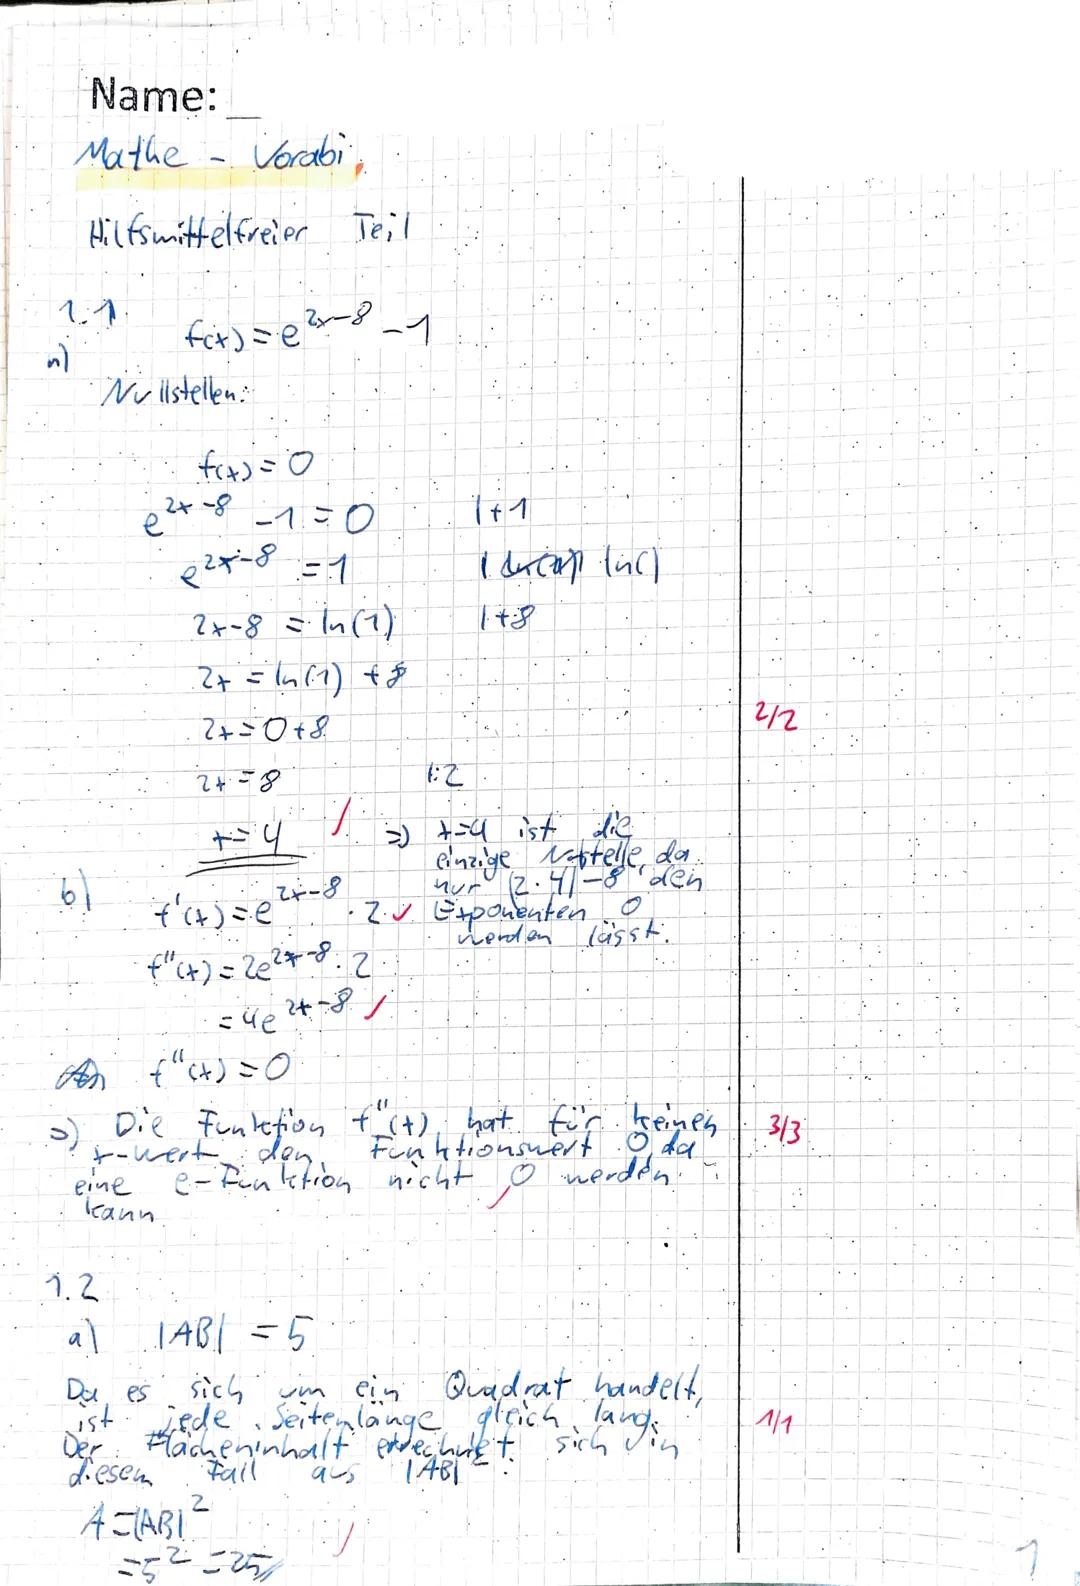 Name:
Mathe - Vorabi
Hilfsmittelfreier Teil
1.1
a)
f(x) = e^{2x-8} - 1
Nullstellen:
f(x) = 0
e^{2x-8} - 1 = 0 | +1
e^{2x-8} = 1 | ln()
2x-8 = ln(1) | +8
2x = ln(1) + 8
2x = 0 + 8
2/2
2x = 8 | :2
x = 4 ✓ => x=4 ist die
einzige da
nur (2·4)-8 den
Exponenten 0
werden lässt.
b)
f'(x) = e^{2x-8} · 2 ✓
f''(x) = 2e^{2x-8} · 2
= 4e^{2x-8} ✓
f''(x) = 0
=> Die Funktion f''(x) hat für keinen
x-wert den Funktionswert 0, da
eine e-Funktion nicht 0 werden
kann. ✓
3/3
1.2
a) |AB| = 5
Da es sich um ein Quadrat handelt,
ist jede Seitenlänge gleich lang.
Der Flächeninhalt errechnet sich in
diesem Fall aus |AB|².
1/1
A = |AB|²
= 5² = 25 ✓
1